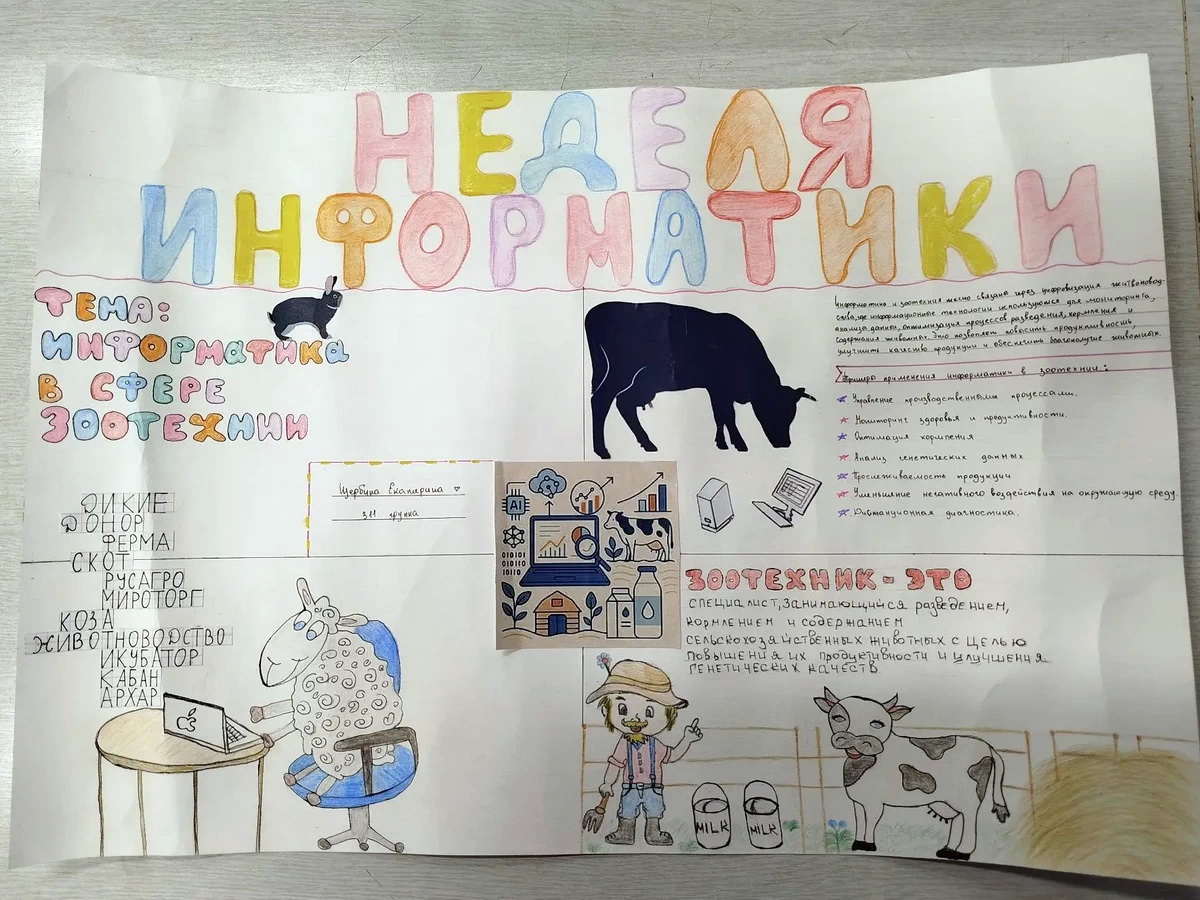 НЕДЕЛЯ
ИНФОРМАТИКИ
ТЕМА:
ИНФОРМАТИКА
В СФЕРЕ
ЗООТЕХНИИ
Щербина Екатерина
311 группа
Информатика и зоотехния тесно связаны через цифровизация животновод-
ства, где информационные технологии используются для мониторинга,
анализа данных, оптимизации процессов разведения, кормления и
содержания животных. Это позволяет повысить продуктивность,
улучшить качество продукции и обеспечить благополучие животных.
Примеры применения информатики в зоотехнии:
Управление производственными процессами.
Мониторинг здоровья и продуктивности.
Оптимация кормления
Анализ генетических данных
Прослеживаемость продукции
Уменьшение негативного воздействия на окружающую среду.
Дистанционная диагностика.
AI
010101
010110
10110
ДИКИЕ
ДОНОР
ФЕРМА
СКОТ
РУСАГРО
МИРОТОРГ
КОЗА
ЖИВОТНОВОДСТВО
ИКУБАТОР
КАБАН
АРХАР
ЗООТЕХНИК - ЭТО
СПЕЦИАЛИСТ, ЗАНИМАЮЩИЙСЯ РАЗВЕДЕНИЕМ,
КОРМЛЕНИЕМ И СОДЕРЖАНИЕМ
СЕЛЬСКОХОЗЯЙСТВЕННЫХ ЖИВОТНЫХ С ЦЕЛЬЮ
ПОВЫШЕНИЯ ИХ ПРОДУКТИВНОСТИ И УЛУЧШЕНИЯ
ГЕНЕТИЧЕСКИХ КАЧЕСТВ.
MILK
MILK